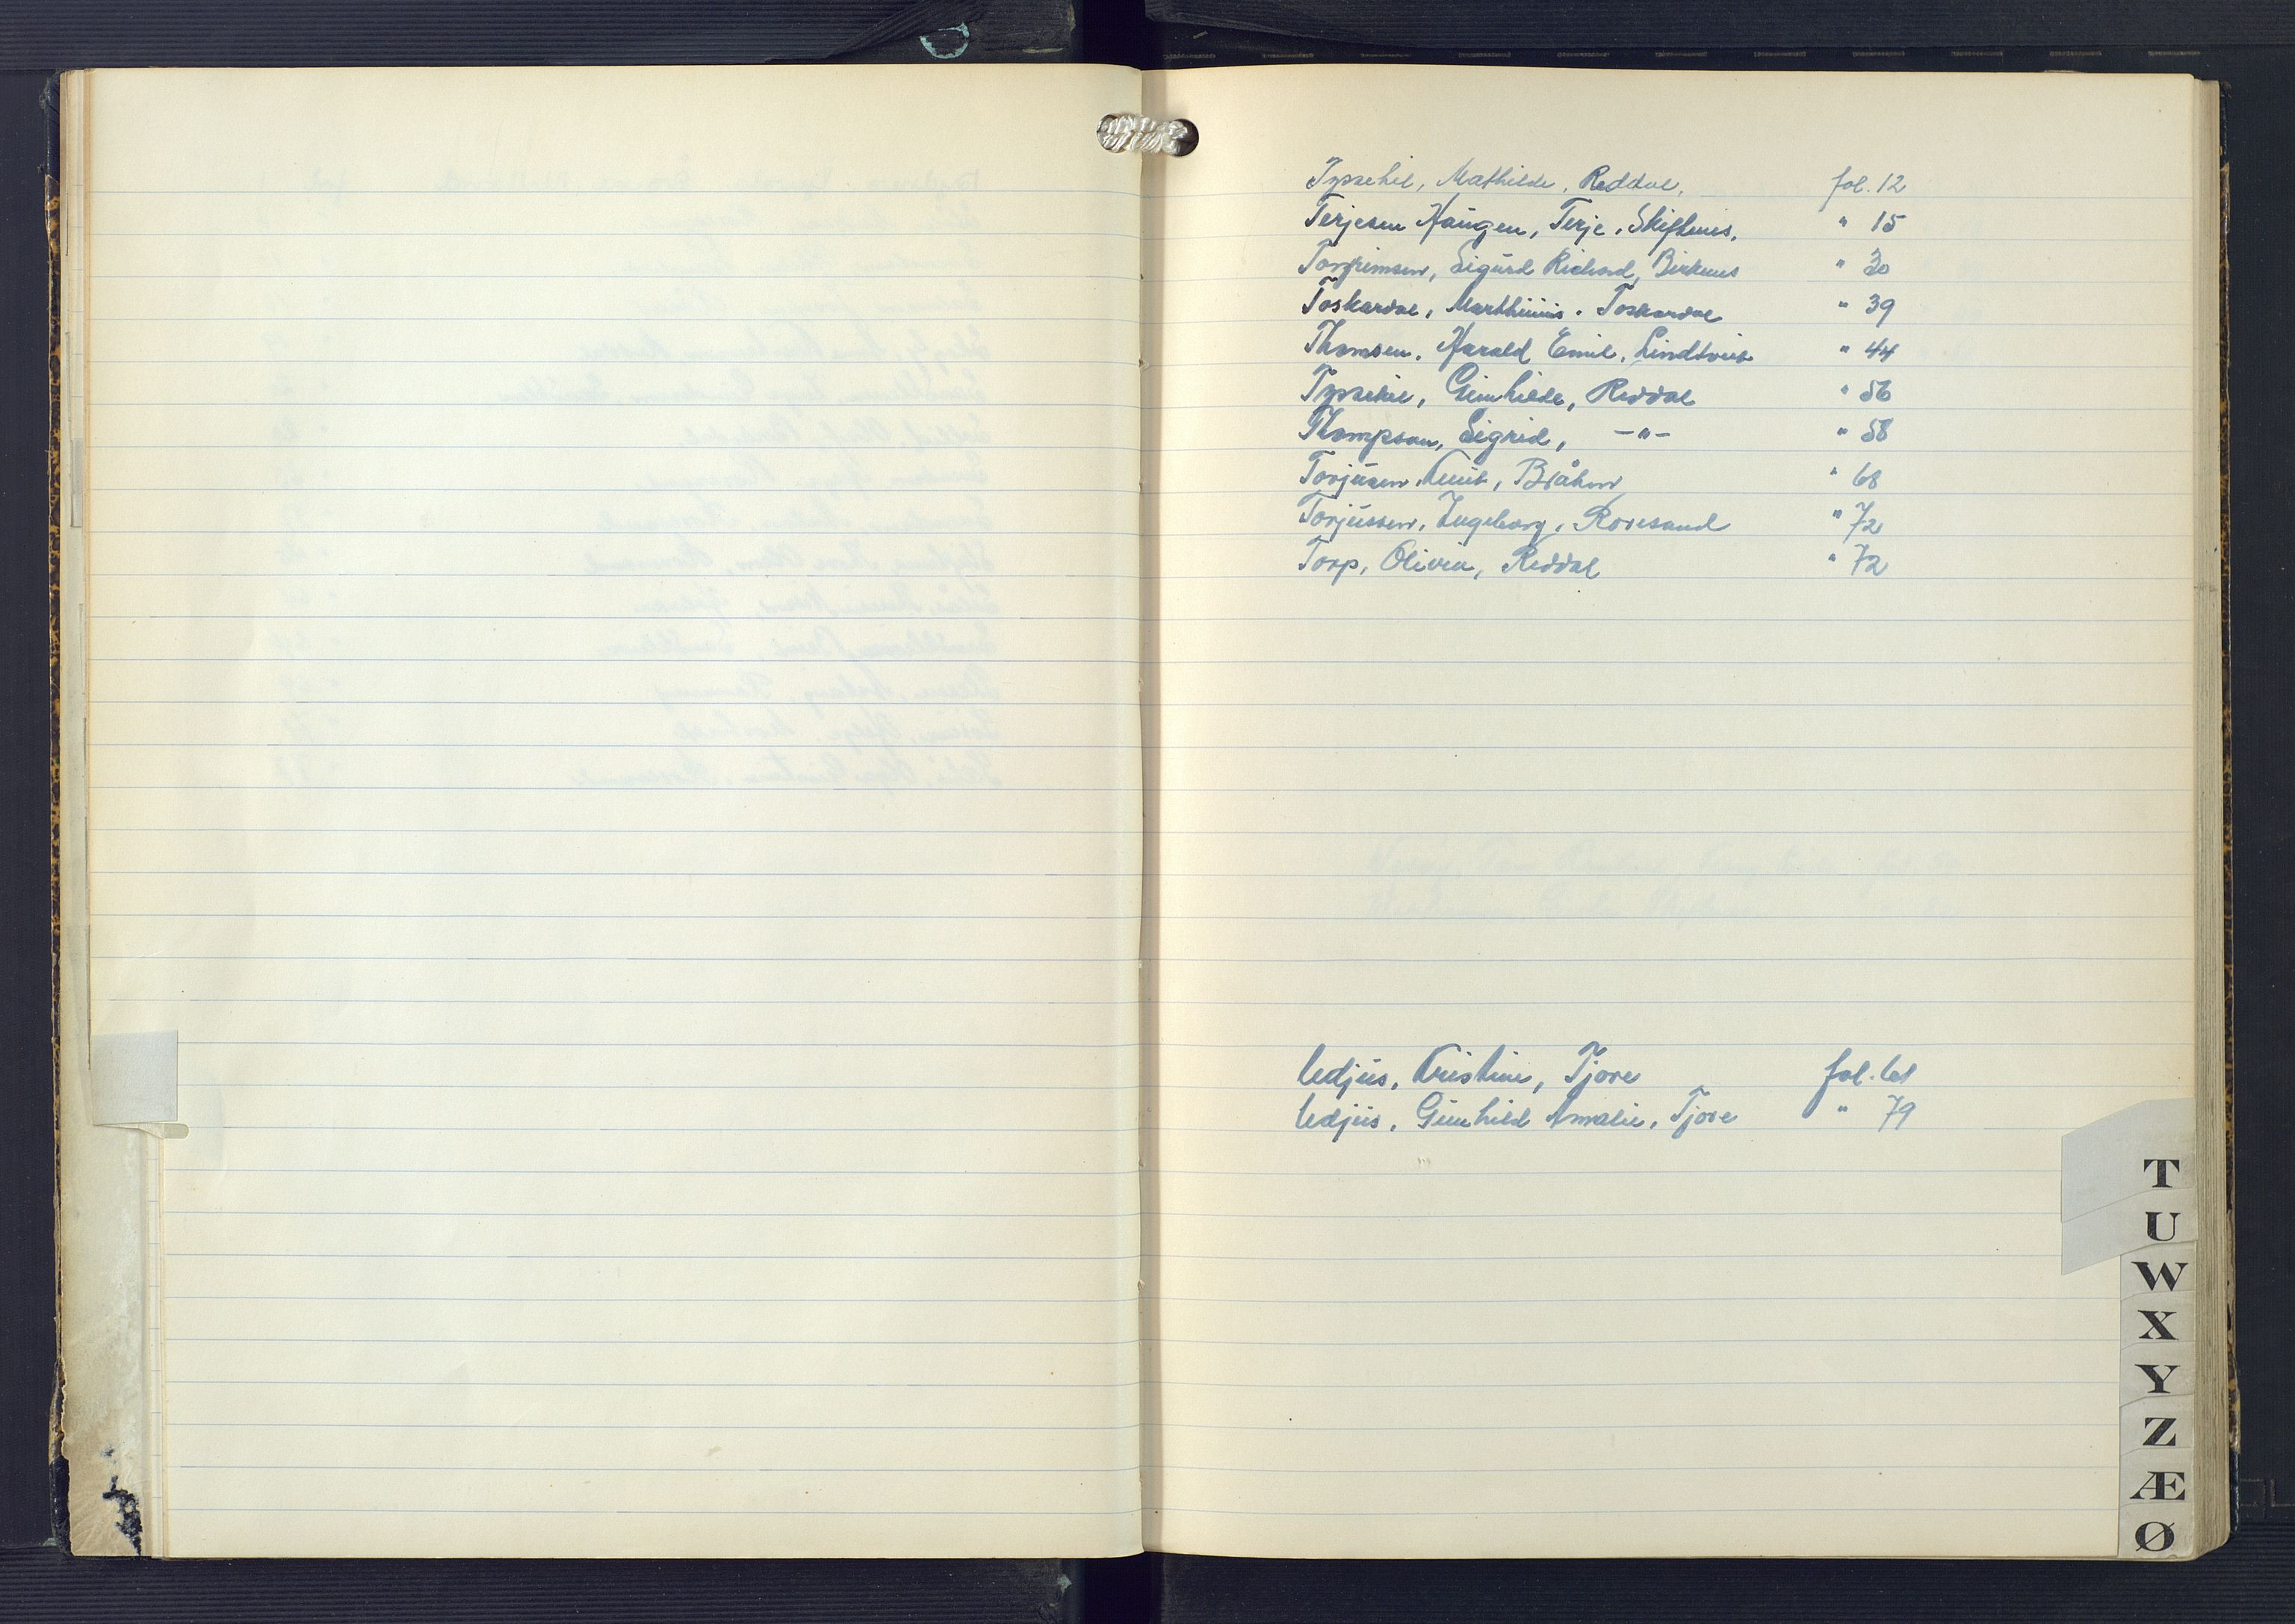 Typsekil, Mathilde, Reddal, fol. 12
Terjesen Haugen, Terje, Skiftenes, " 15
Torgrimsen, Sigurd Richard, Birkenes " 30
Toskardal, Marthinius. Toskardal " 39
Thomsen, Harald Emil, Lindtveit " 44
Typsekil, Gunhilde, Reddal " 56
Thompson, Sigrid, -"- " 58
Torjusen, Knut, Bråten " 68
Torjussen, Ingeborg, Roresand " 72
Torp, Olivia, Reddal " 72
Udjus, Kristine, Tjore fol. 61
Udjus, Gunhild Amalie, Tjore " 79
T
U
W
X
Y
Z
Æ
Ø